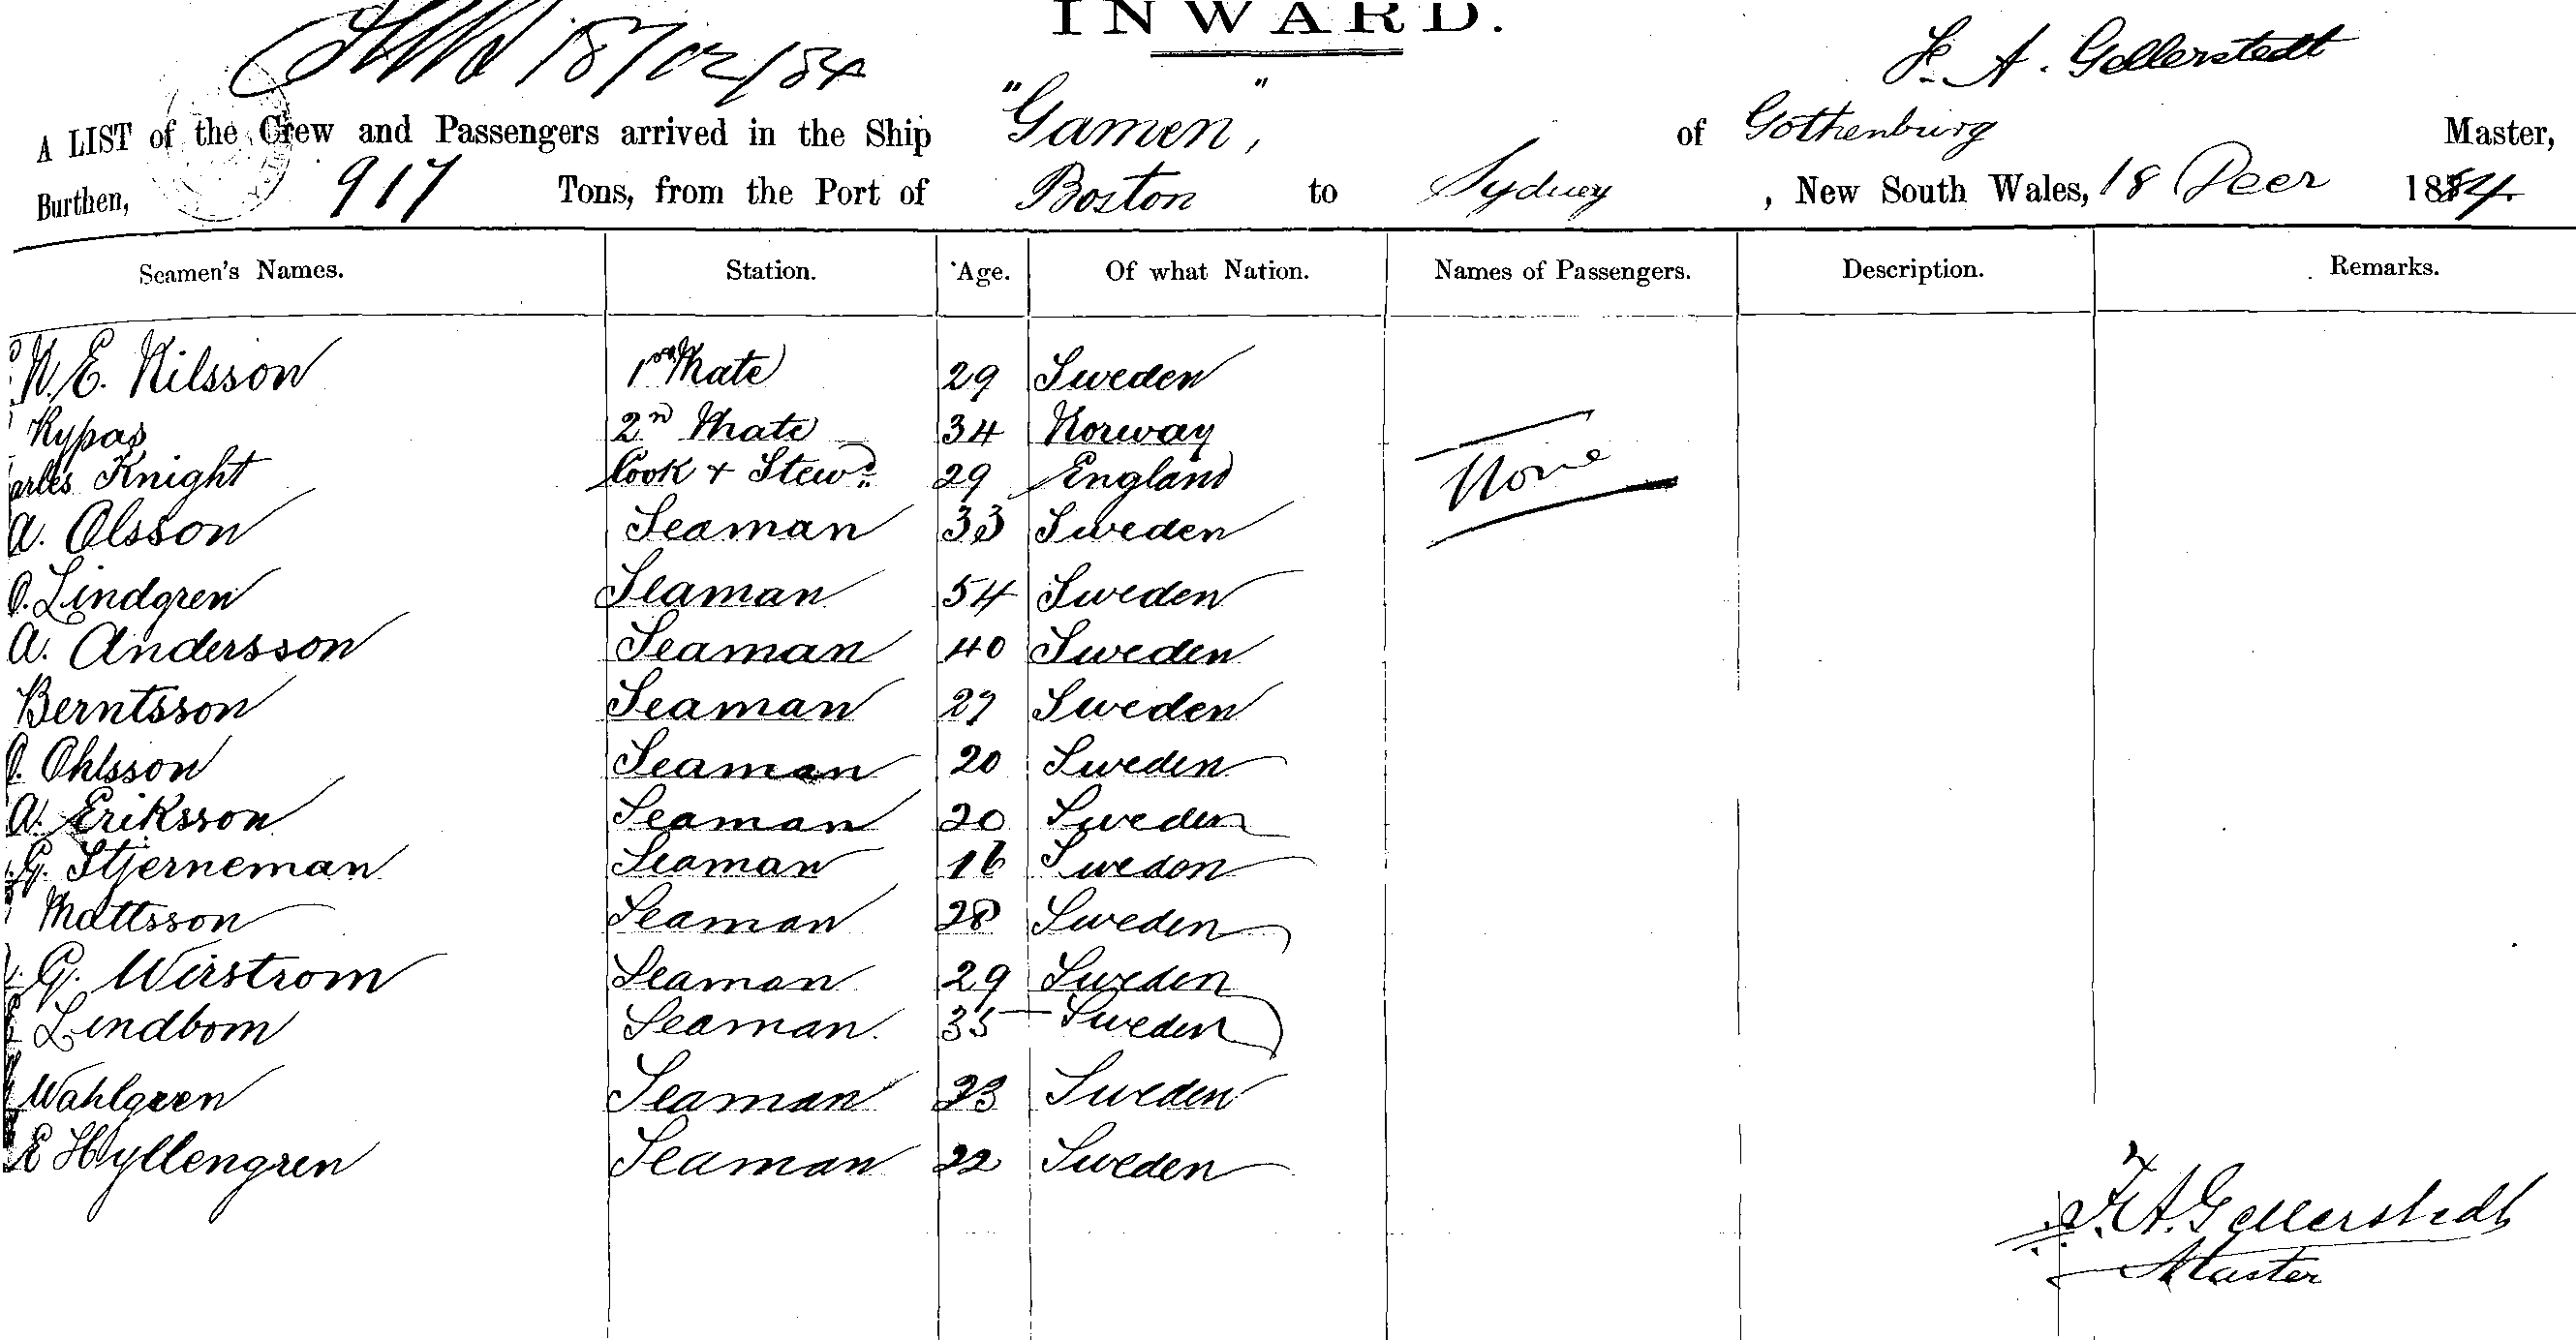 INWARD.
18/12/84
F. A. Gellerstedt
A LIST of the Crew and Passengers arrived in the Ship "Gamen", of Gothenburg Master,
Burthen, 917 Tons, from the Port of Boston to Sydney, New South Wales, 18 Decr 1884.
Seamen's Names. Station. Age. Of what Nation. Names of Passengers. Description. Remarks.
N. E. Nilsson 1st Mate 29 Sweden
Rypas 2nd Mate 34 Norway
arles Knight Cook + Stewd 29 England None
A. Olsson Seaman 33 Sweden
Lindgren Seaman 54 Sweden
A. Andersson Seaman 40 Sweden
Berntsson Seaman 27 Sweden
Ohlsson Seaman 20 Sweden
A. Eriksson Seaman 20 Sweden
G. Stjerneman Seaman 16 Sweden
Mattsson Seaman 28 Sweden
G. Wirstrom Seaman 29 Sweden
Lindbom Seaman 35 Sweden
Wahlgren Seaman 23 Sweden
E Hyllengren Seaman 22 Sweden
F. A. Gellerstedt
Master